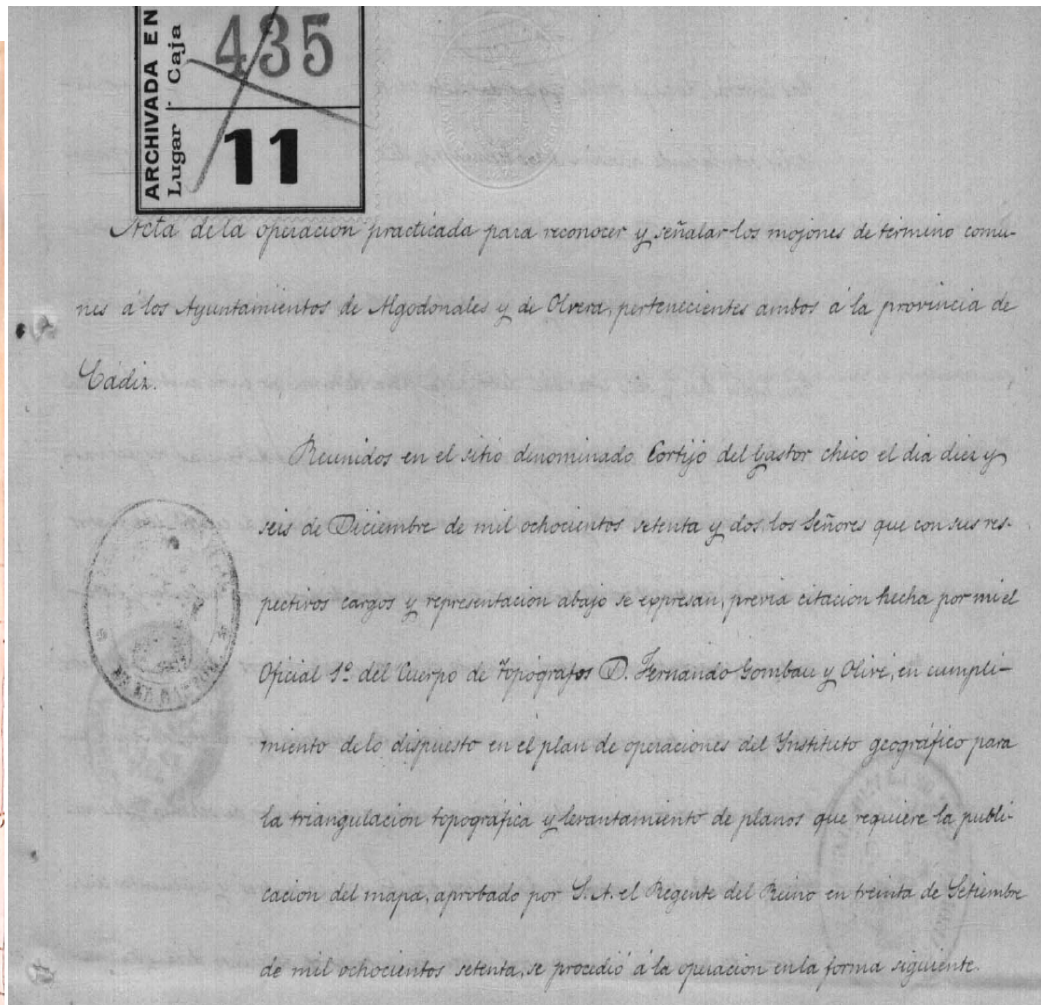 ARCHIVADA EN
Lugar · Caja
435
11
Acta de la operacion practicada para reconocer y señalar los mojones de término comu-
nes á los Ayuntamientos de Algodonales y de Olvera, pertenecientes ambos á la provincia de
Cádiz.
Reunidos en el sitio denominado Cortijo del Gastor chico el dia diez y
seis de Diciembre de mil ochocientos setenta y dos, los Señores que con sus res-
pectivos cargos y representacion abajo se expresan, prévia citacion hecha por mi el
Oficial 1º del Cuerpo de Topógrafos D. Fernando Gombau y Olivé, en cumpli-
miento de lo dispuesto en el plan de operaciones del Instituto geográfico para
la triangulacion topográfica y levantamiento de planos que requiere la publi-
cacion del mapa, aprobado por S. A. el Regente del Reino en treinta de Setiembre
de mil ochocientos setenta, se procedió á la operacion en la forma siguiente.